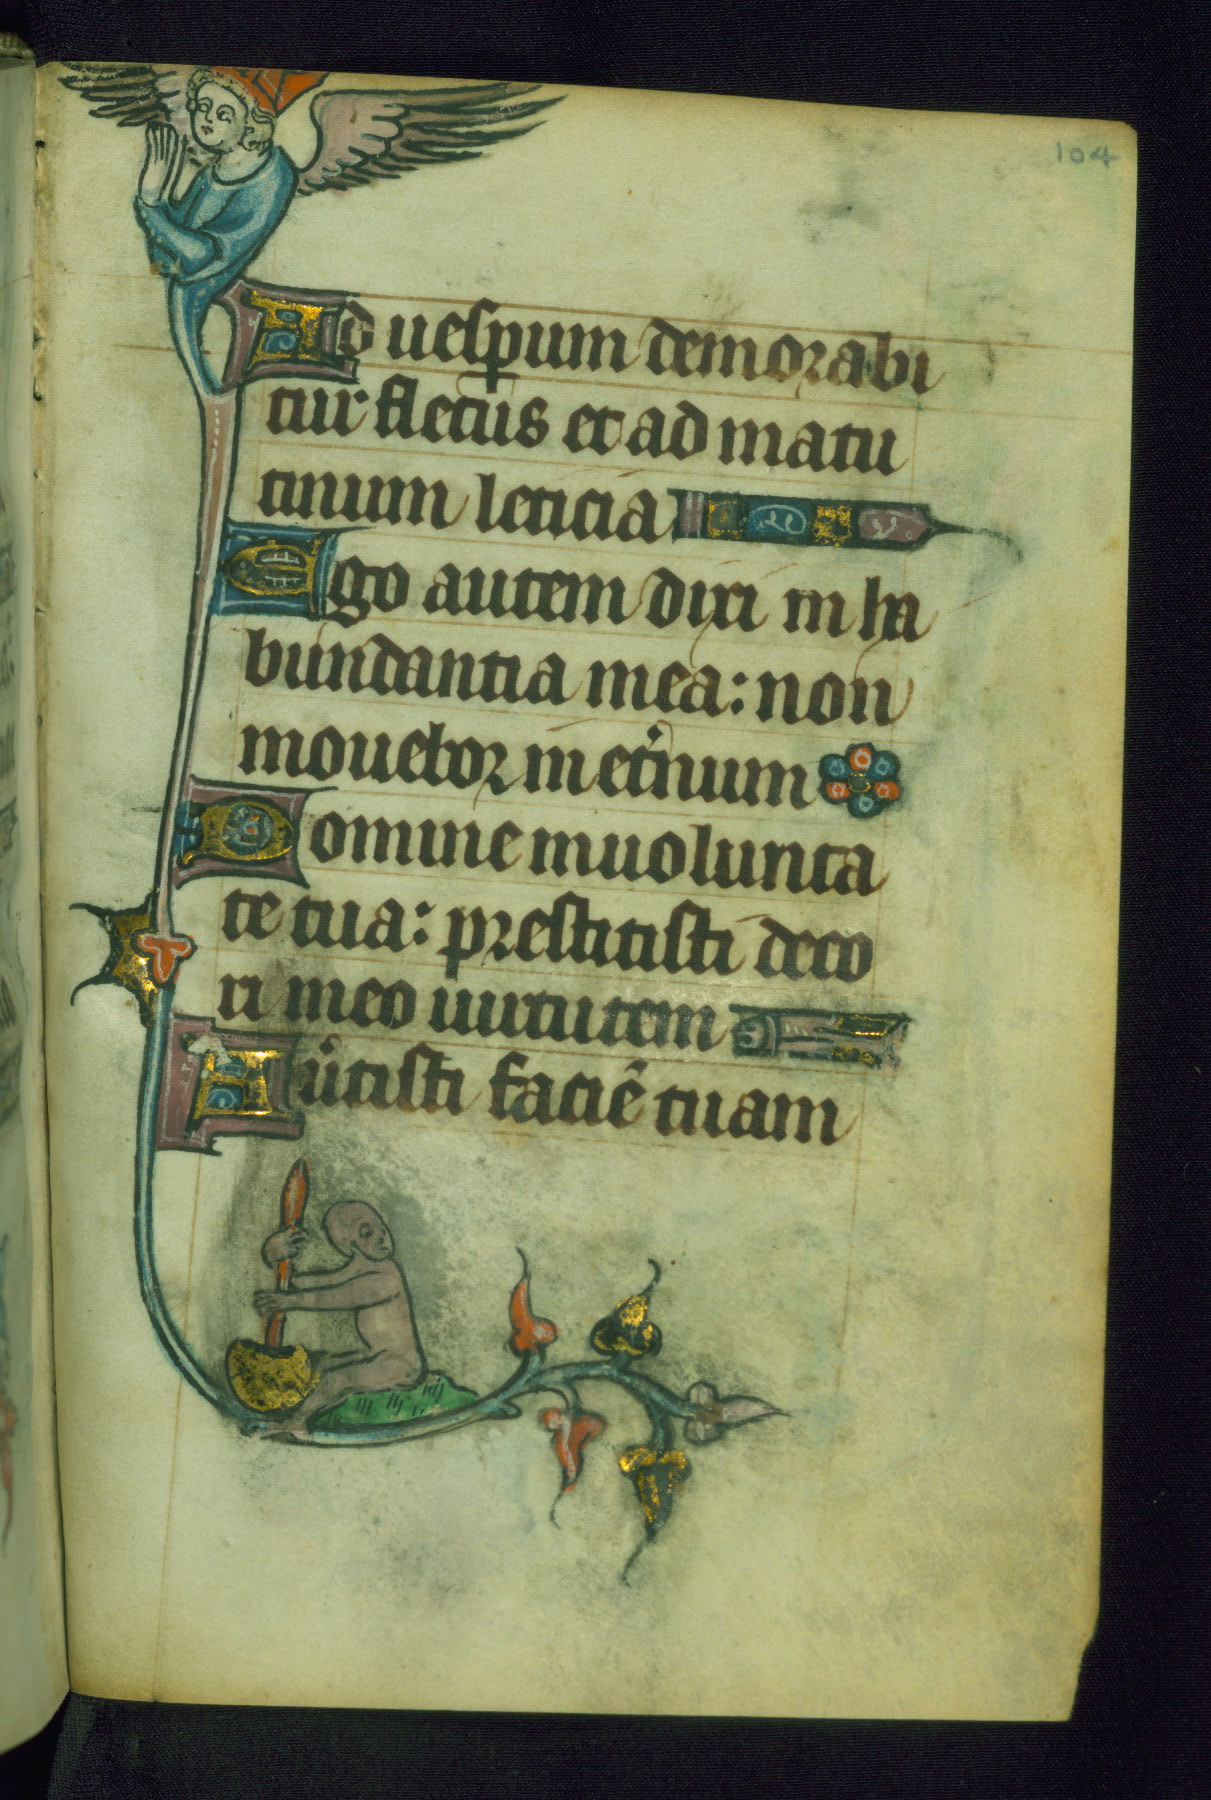 104
Ad uesꝑum demorabi
tur fletus et ad matu
tinum leticia
Ego autem dixi in ha
bundantia mea: non
mouebor in et͛num
Domine in uolunta
te tua: prestitisti deco
ri meo uirtutem
Au͛tisti faciē tuam